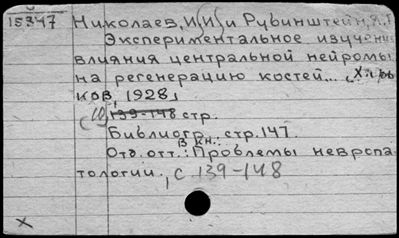 15347 Николаев, И.И. и Рубинштейн, Я.,
Экспериментальное изучени
влияния центральной нейромы
на регенерацию костей... Харь
ков, 1928,
(10) 139-148 стр.
Библиогр., стр. 147.
Отд. отт. в кн.: Проблемы невропа
тологии., с 139-148
х